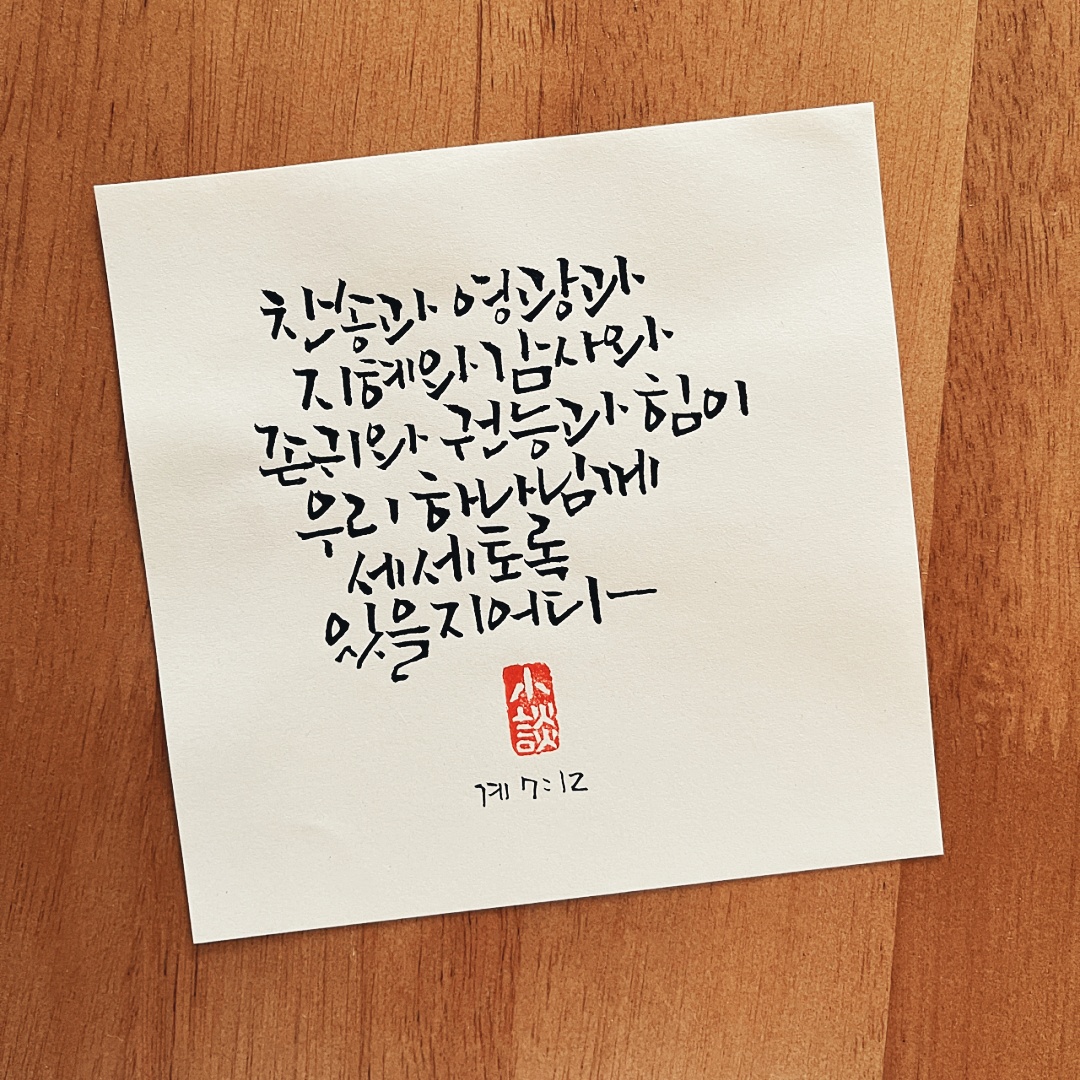 찬송과 영광과
지혜와 감사와
존귀와 권능과 힘이
우리 하나님께
세세토록
있을지어다
小談
계 7:12